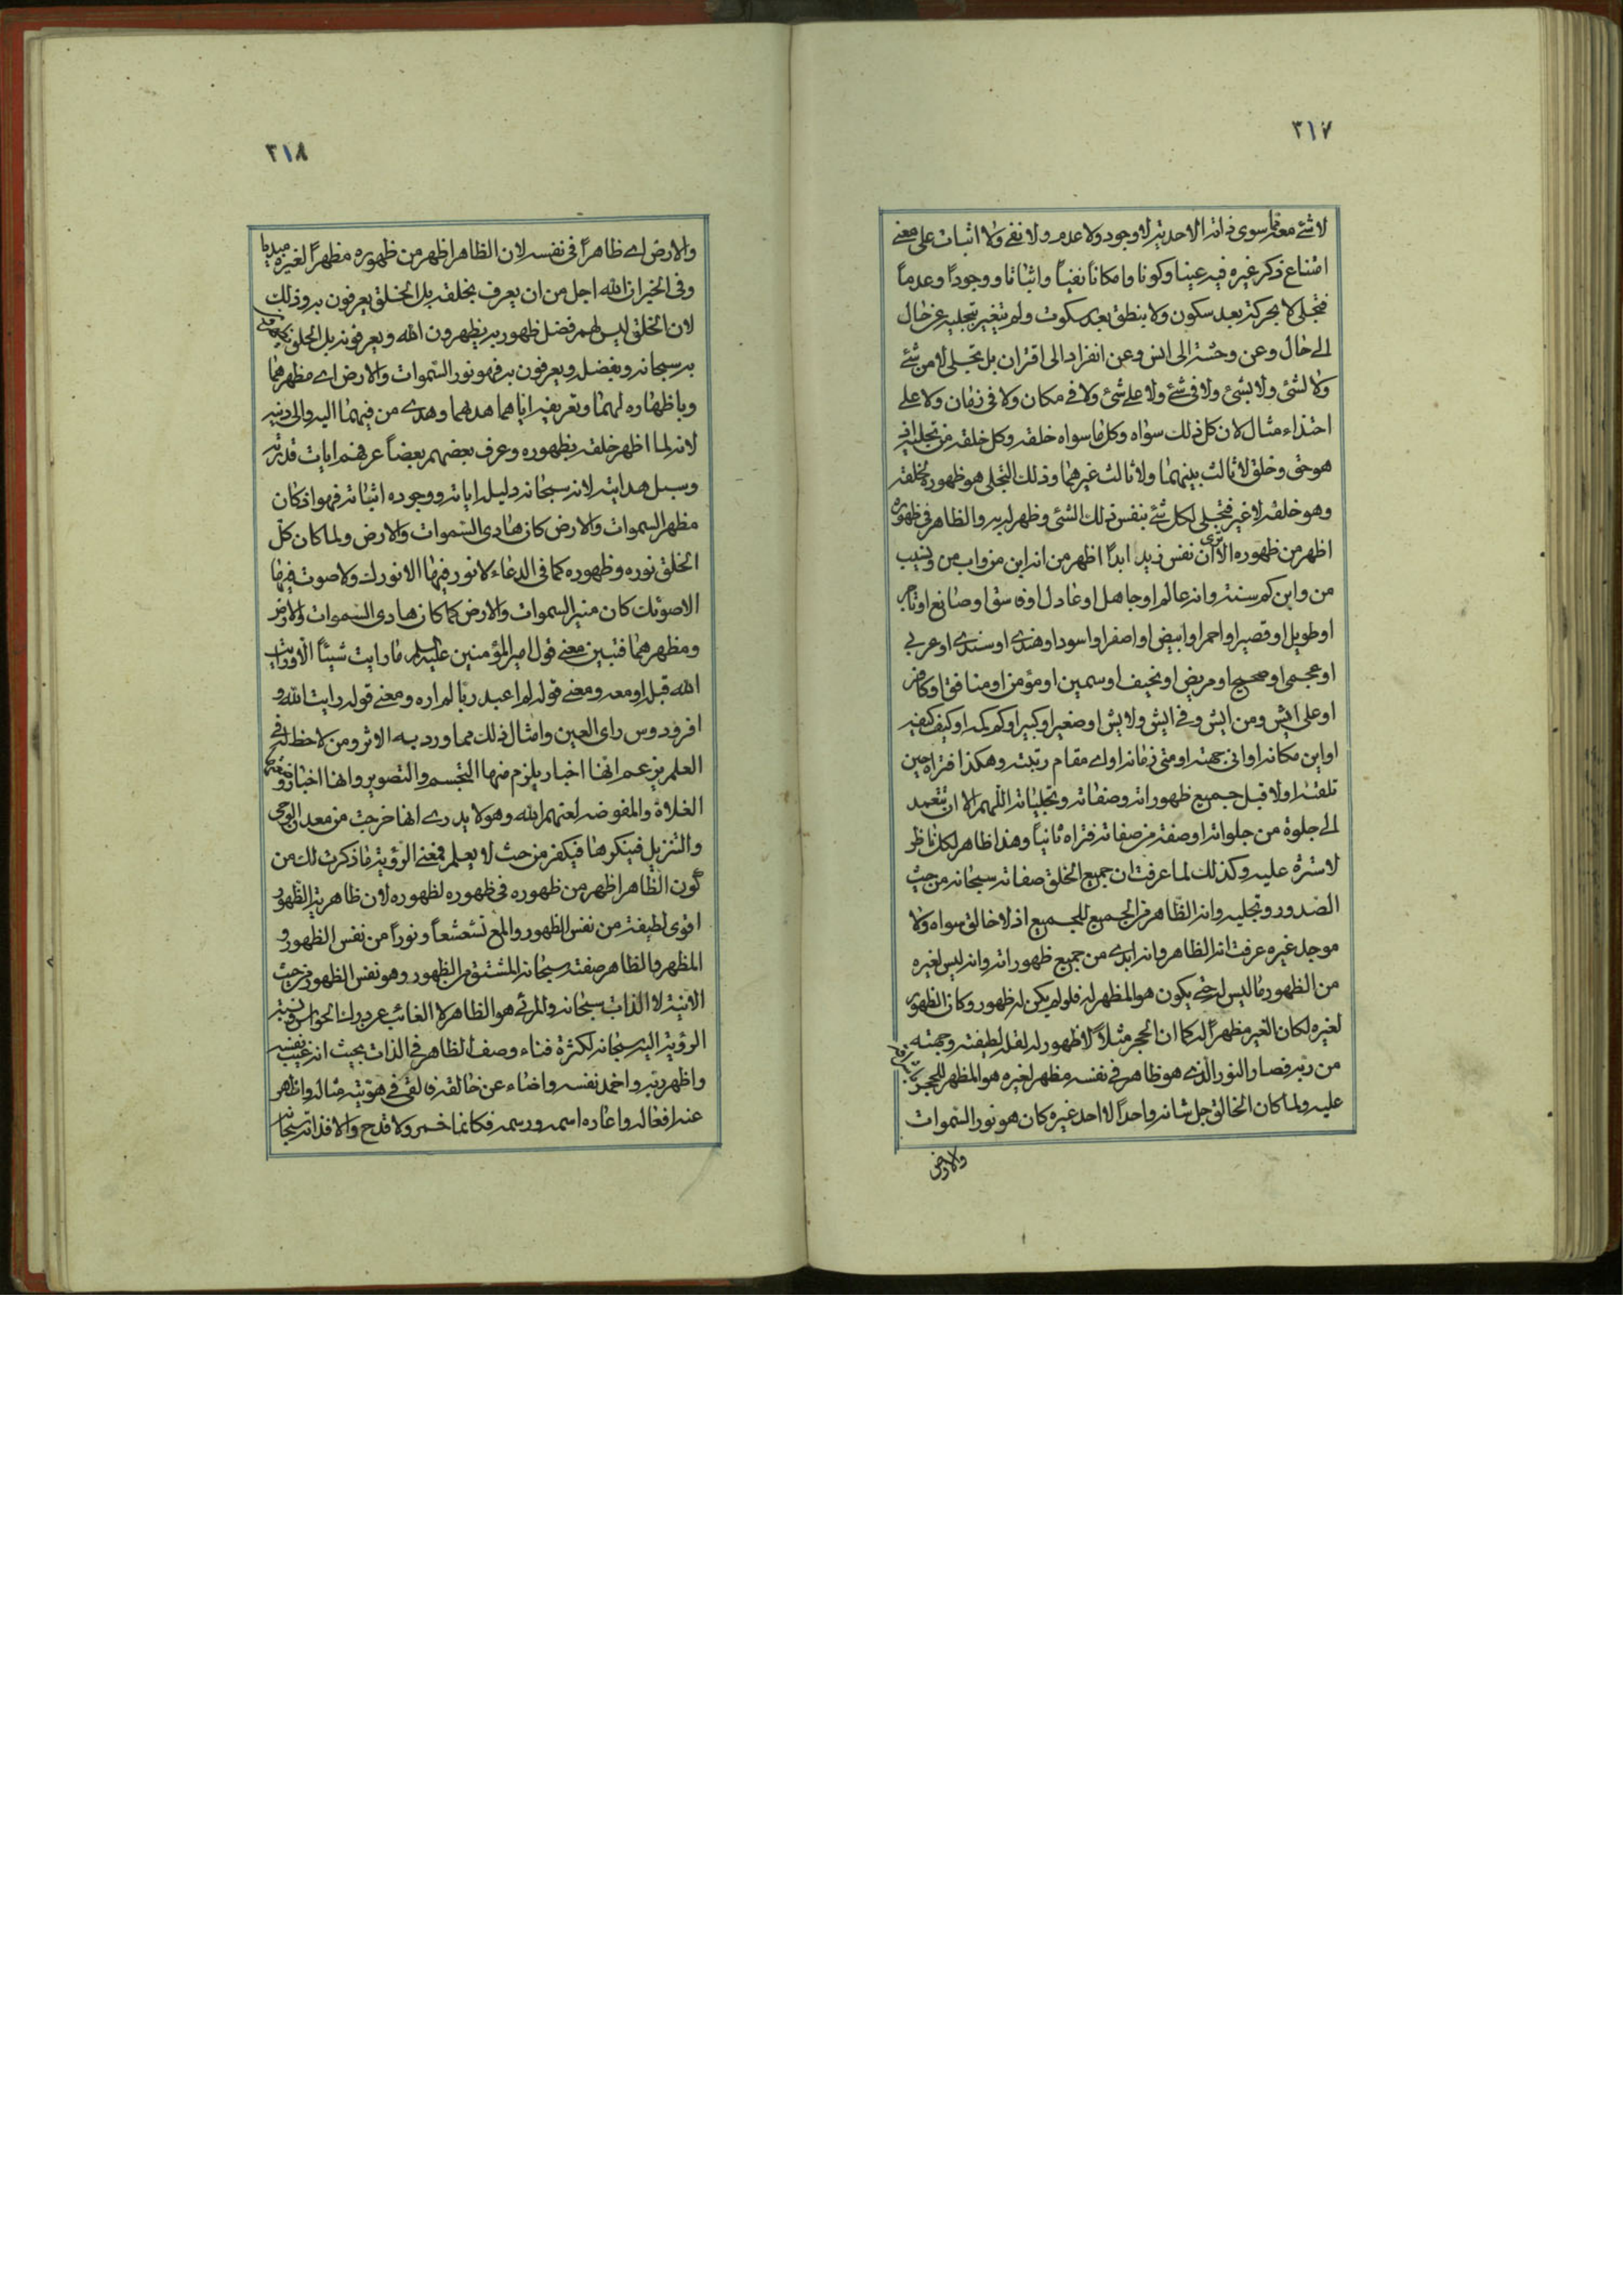 ٣١٧
لا شئ معه مما سوى ذاته الاحدية لا وجود ولا عدم ولا نفى ولا اثبات على معنى
امتناع ذكر غيره فيه عينا وكونا وامكانا نفياً واثباتا ووجوداً وعدماً
فتجلى لا بحركة بعد سكون ولا بنطق بعد سكوت ولم يتغير بتجليه عن حال
الى حال وعن وحشة الى انس وعن انفراد الى اقتران بل تجلى لا من شئ
ولا لشئ ولا بشئ ولا فى شئ ولا على شئ ولا فى مكان ولا فى زمان ولا على
احتذاء مثال لان كل ذلك سواه وكل ما سواه خلقه وكل خلقه من تجليه اذ
هو حق وخلق لا ثالث بينهما ولا ثالث غيرهما وذلك التجلى هو ظهوره لخلقه
وهو خلقه لا غير فتجلى لكل شئ بنفس ذلك الشئ وظهر له به والظاهر فى ظهوره
اظهر من ظهوره الا ترى ان نفس زيد ابداً اظهر من انه ابن من واب من ونسيب
من وابن كم سنة وانه عالم او جاهل او عادل او فاسق او صانع او تاجر
او طويل او قصير او احمر او ابيض او اصفر او اسود او هندى او سندى او عربى
او عجمى او صحيح او مريض او نحيف او سمين او مؤمن او منافق او كافر
او على ايش ومن ايش وفى ايش ولايش او صغير او كبير او كم كمه او كيف كيفيه
او اين مكانه او انى جهته او متى زمانه او اى مقام رتبته وهكذا فتراه حين
تلقته اولا قبل جميع ظهوراته وصفاته وتجلياته اللهم الا ان تتعمد
الى جلوة من جلواته او صفة من صفاته فتراه ثانياً وهذا ظاهر لكل ناظر
لا سترة عليه وكذلك لما عرفت ان جميع الخلق صفاته سبحانه من حيث
الصدور وتجليه وانه الظاهر من الجميع للجميع اذ لا خالق سواه ولا
موجد غيره عرفت انه الظاهر وانه ابدى من جميع ظهوراته وانه ليس لغيره
من الظهور ما ليس له حتى يكون هو المظهر له فلو لم يكن له ظهور وكان الظهور
لغيره لكان الغير مظهراً له كما ان الحجر مثلاً لا ظهور له لقلة لطيفته وجهته
من ربه فصار النور الذى هو ظاهر فى نفسه مظهر لغيره هو المظهر للحجر
عليه ولما كان الخالق جل شانه واحداً لا احد غيره كان هو نور السموات
والارض
٣١٨
والارض اى ظاهراً فى نفسه لان الظاهر اظهر من ظهوره مظهراً لغيره مبديا
وفى الخبر ان الله اجل من ان يعرف بخلقه بل الخلق يعرفون به وذلك
لان الخلق ليس لهم فضل ظهور به يظهرون الله ويعرفونه بل الخلق كلهم
به سبحانه وبفضله ويعرفون به فهو نور السموات والارض اى مظهرهما
وباظهاره لهما وتعريفه اياهما هداهما وهدى من فيهما اليه والى دينه
لانه لما اظهر خلقه بظهوره وعرف بعضهم بعضاً عرفهم ايات قدرته
وسبل هدايته لانه سبحانه دليله اياته ووجوده اثباته فهو اذ كان
مظهر السموات والارض كان هادى السموات والارض ولما كان كل
الخلق نوره وظهوره كما فى الدعاء لا نور فيها الا نورك ولا صوت فيها
الا صوتك كان منير السموات والارض كما كان هادى السموات والارض
ومظهرهما فتبين معنى قول امير المؤمنين عليه السلم ما رايت شيئاً الا ورايت
الله قبله او معه ومعنى قوله لم اعبد ربا لم اره ومعنى قوله رايت الله و
افردوس راى العين وامثال ذلك مما ورد به الاثر ومن لا حظ له فى
العلم يزعم انها اخبار يلزم منها التجسم والتصوير وانها اخبار
الغلاة والمفوضه لعنهم الله وهو لا يدرى انها خرجت من معدن الوحى
والتنزيل فينكرها فيكفر من حيث لا يعلم فمعنى الرؤية ما ذكرت لك من
كون الظاهر اظهر من ظهوره فى ظهوره لظهوره لان ظاهرية الظهور
اقوى لطيفة من نفس الظهور والمع تشعشعاً ونوراً من نفس الظهور و
المظهر والظاهر صفته سبحانه المشتق من الظهور وهو نفس الظهور من حيث
الانية لا الذات سبحانه والمرئى هو الظاهر لا الغائب عن درك الحواس ونسبة
الرؤية اليه سبحانه لكثرة فناء وصف الظاهر فى الذات بحيث انه غيب نفسه
واظهر ربه واخمد نفسه واضاء عن خالقه فالقى فى هويته مثاله واظهر
عنه افعاله واعاره اسمه ورسمه فكانما خمر ولا قدح والا فذاته سبحانه